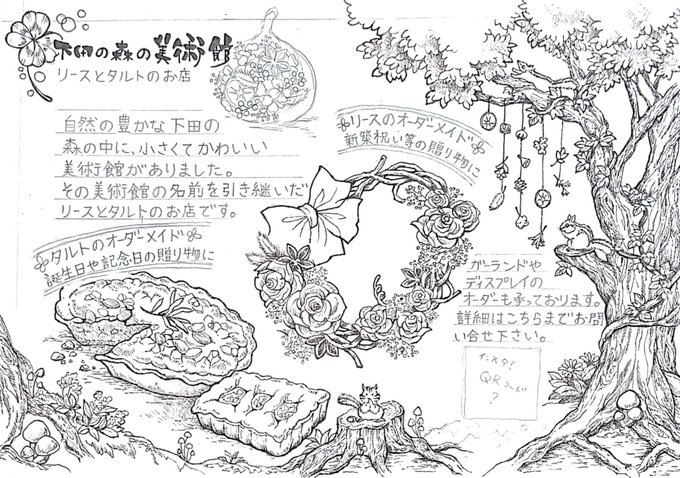 下田の森の美術館
リースとタルトのお店
自然の豊かな下田の
森の中に、小さくてかわいい
美術館がありました。
その美術館の名前を引き継いだ
リースとタルトのお店です。
リースのオーダーメイド
新築祝い等の贈り物に
タルトのオーダーメイド
誕生日や記念日の贈り物に
ガーランドや
ディスプレイの
オーダーも承っております。
詳細はこちらまでお問
い合せ下さい。
インスタ?
QRコード
?